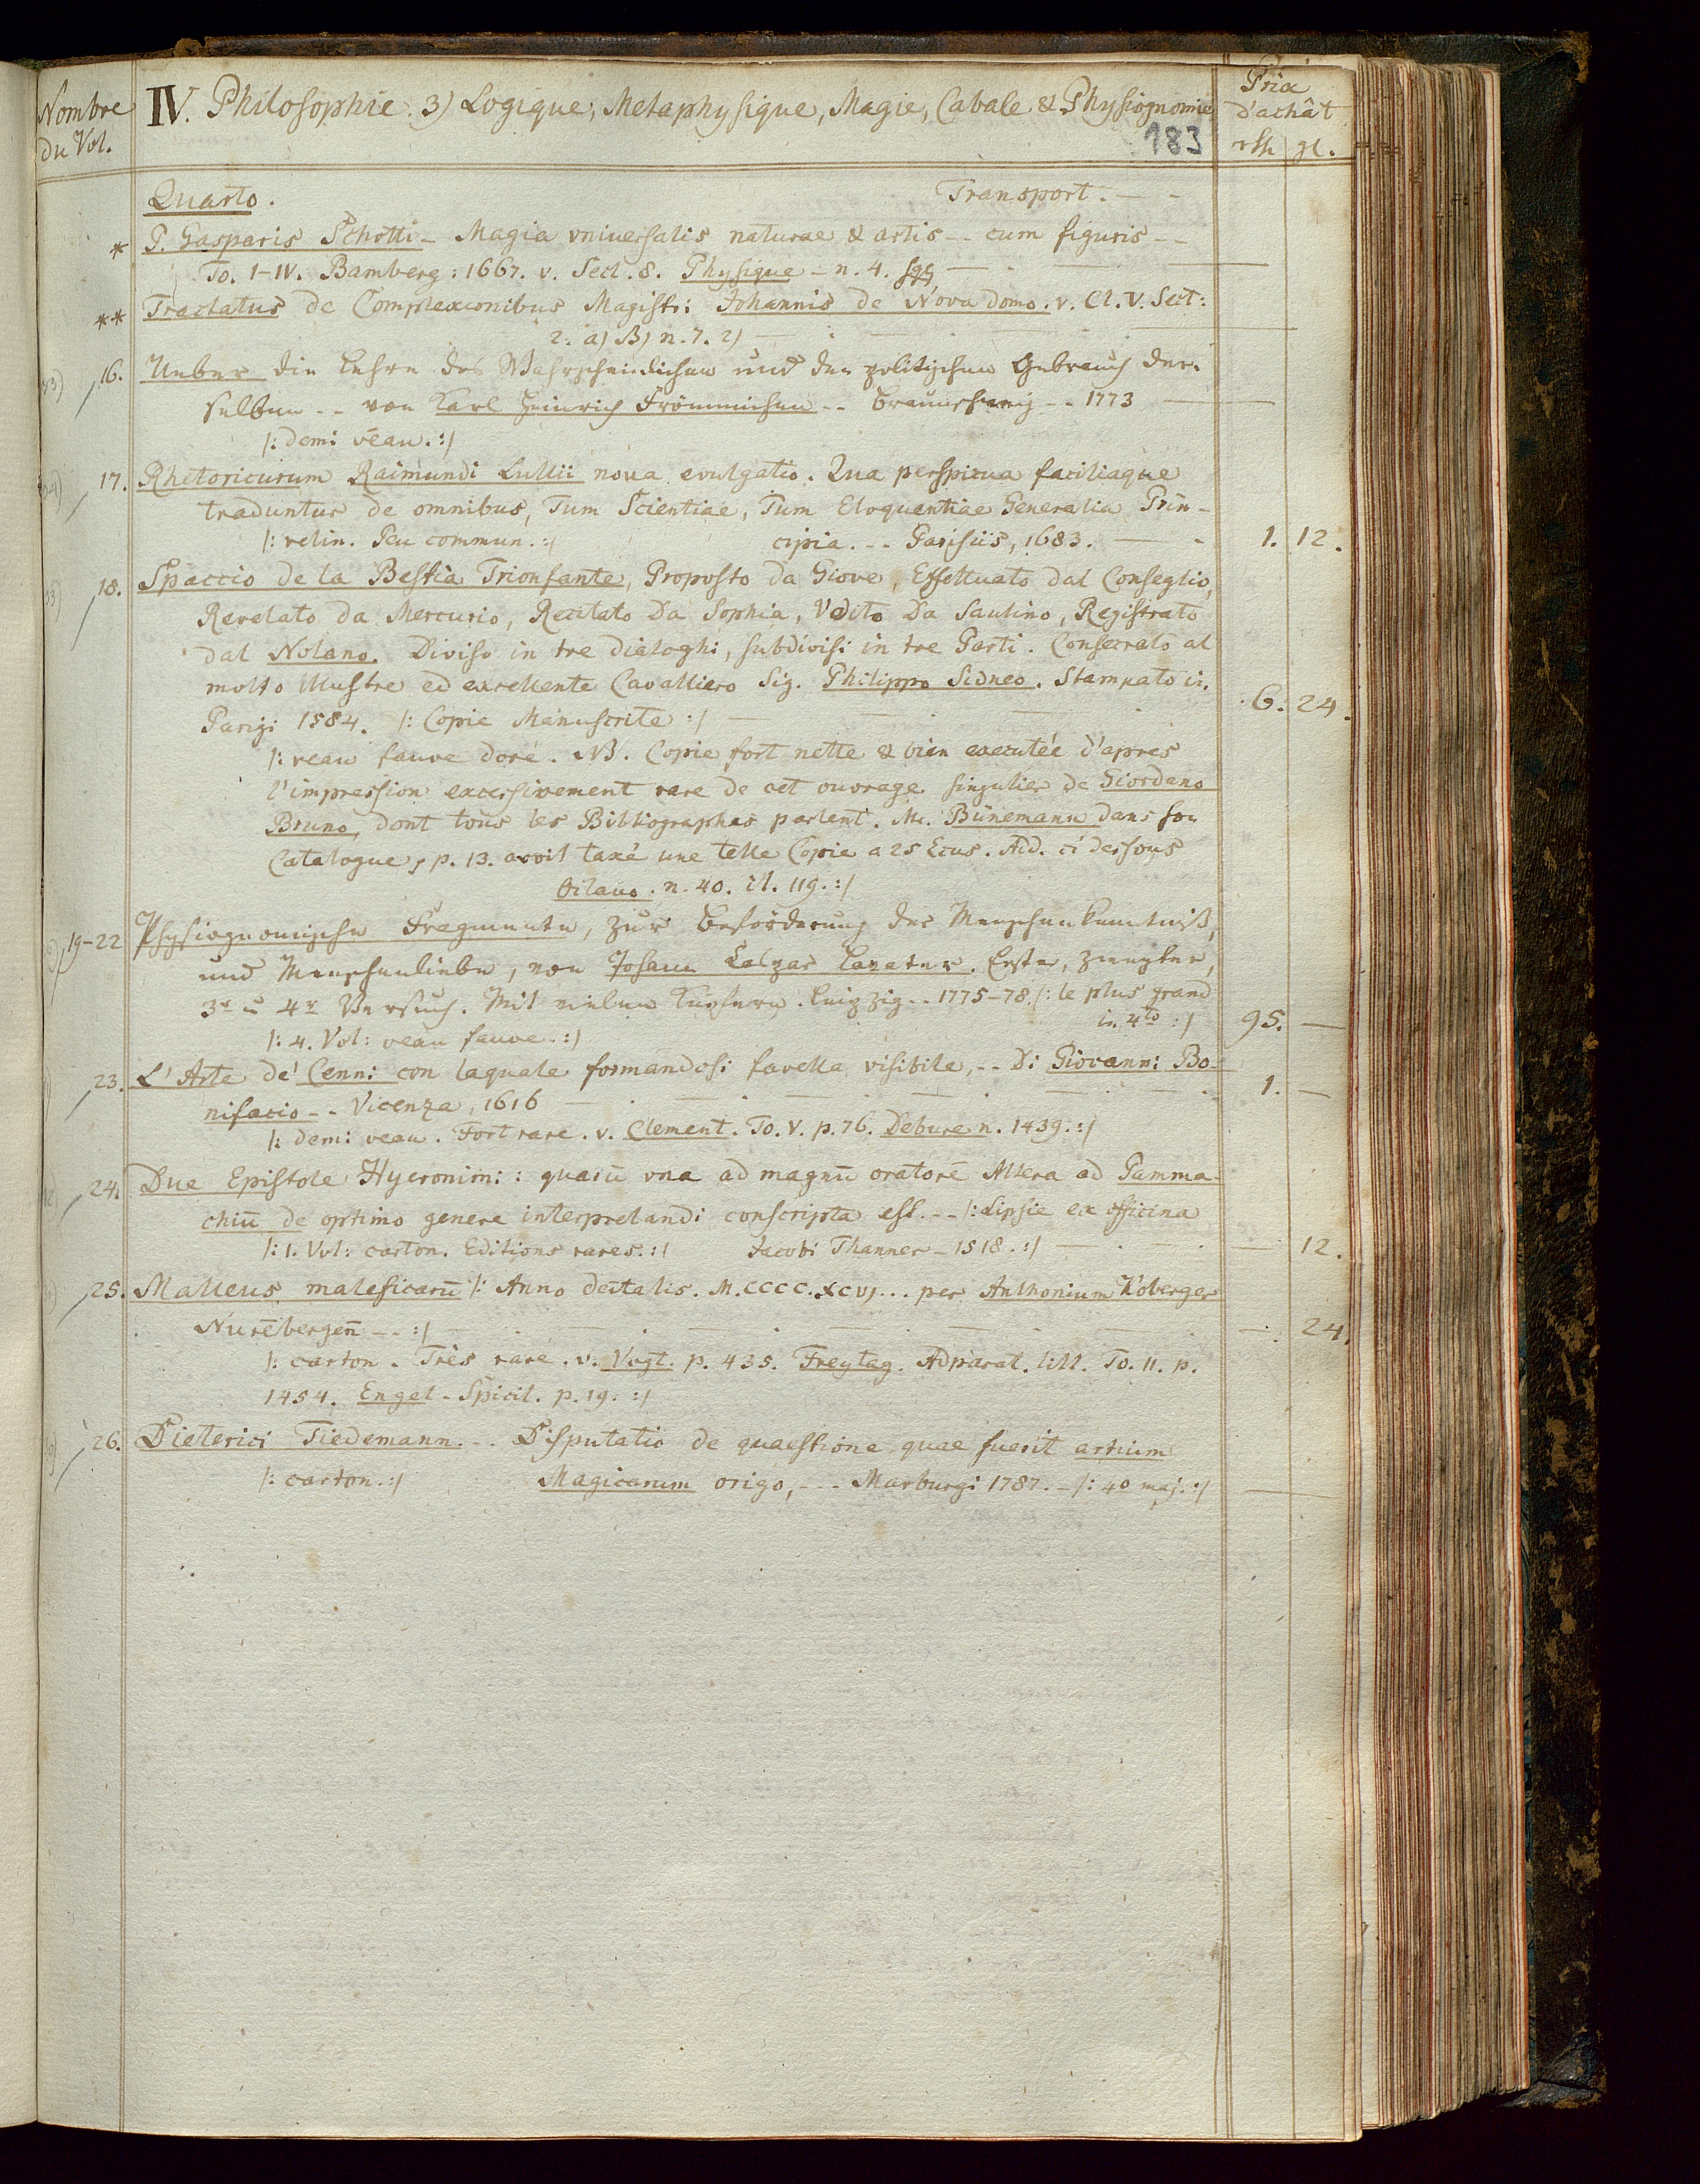 Nombre du Vol.
IV. Philosophie. 3) Logique, Metaphysique, Magie, Cabale & Physiognomie
Prix d'achât
183
rth gl.
Quarto. Transport. — -
* P. Gasparis Schotti - Magia vniuersalis naturae & artis -- cum figuris --
To. I-IV. Bamberg: 1667. v. Sect. 8. Physique - n. 4. sqq —
** Tractatus de Complexionibus Magistri Johannis de Nova domo. v. Cl. V. Sect:
2. a) B) n. 7. 2) —
16. Ueber die Lehre des Wahrscheinlichen und den politischen Gebrauch der-
selben -- von Karl Heinrich Frömmichen -- Braunschweig -- 1773 —
/: demi veau. :/
17. Rhetoricorum Raimundi Lullii noua evulgatio. Qua perspicua faciliaque
traduntur de omnibus, Tum Scientiae, Tum Eloquentiae Generalia Prin-
/: velin. Peu commun. :/ cipia. -- Parisiis, 1683. — - 1. 12.
18. Spaccio de la Bestia Trionfante, Proposto da Giove, Effettuato dal Conseglio,
Revelato da Mercurio, Recitato Da Sophia, Vdito Da Saulino, Registrato
dal Nolano. Diviso in tre dialoghi, subdivisi in tre Parti. Consecrato al
molto Illustre ed excellente Cavalliero Sig. Philippo Sidneo. Stampato in
Parigi 1584. /: Copie Manuscrite :/ — 6. 24.
/: veau fauve doré. NB. Copie fort nette & bien executée d'apres
l'impression excessivement rare de cet ouvrage singulier de Giordano
Bruno, dont tous les Bibliographes parlent. Mr. Bünemann dans son
Catalogue, p. 13. avoit taxé une telle Copie a 25 Ecus. Add. ci dessous
Octavo. n. 40. cl. 119. :/
19-22 Physiognomische Fragmente, zur Beförderung der Menschenkenntniß,
und Menschenliebe, von Johann Caspar Lavater. Erster, zweyter,
3r u 4r Versuch. Mit vielen Kupfern. Leipzig -- 1775-78. /: le plus grand
in 4to :/ 95. —
/: 4. Vol: veau fauve. :/
23. L'Arte de' Cenni con laquale formandosi favella visibile, -- Di Giovanni Bo-
nifacio -- Vicenza, 1616 — 1. —
/: demi veau. Fort rare. v. Clement. To. V. p. 76. Debure n. 1439. :/
24. Due Epistole Hyeronimi: quarū vna ad magnū oratorē Altera ad Pamma-
chiū de optimo genere interpretandi conscripta est. -- /: Lipsie ex officina
/: 1. Vol: carton. Editions rares. :/ Jacobi Thanner - 1518. :/ — — 12.
25. Malleus maleficarū /: Anno dētalis. M.CCCC.XCVJ... per Anthonium Koberger
Nurēbergeñ -- :/ — —. 24.
/: carton. Très rare. v. Vogt. p. 435. Freytag. Adparat. litt. To. II. p.
1454. Engel - Spicil. p. 19. :/
26. Dieterici Tiedemann. -- Disputatio de quaestione quae fuerit artium
/: carton. :/ Magicarum origo, --- Marburgi 1787. - /: 4o maj. :/ —